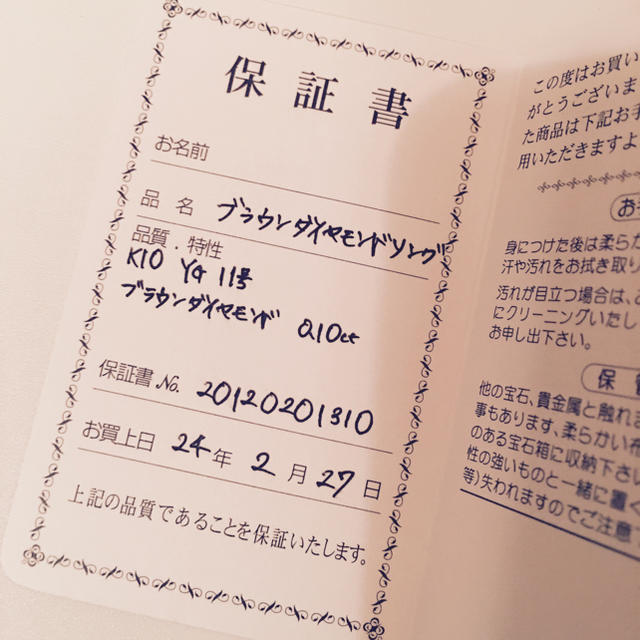 保証書
お名前
品 名 ブラウンダイヤモンドリング
品質・特性
K10 YG 11号
ブラウンダイヤモンド 0.10ct
保証書 No. 20120201310
お買上日 24年 2月 27日
上記の品質であることを保証いたします。
この度はお買い
がとうございま
た商品は下記お手
用いただきますよ
お手
身につけた後は柔らか
汗や汚れをお拭き取り
汚れが目立つ場合は、お
にクリーニングいたし
お申し出下さい。
保 管
他の宝石、貴金属と触れ
事もあります、柔らかい布
のある宝石箱に収納下さい
性の強いものと一緒に置く
等)失われますのでご注意